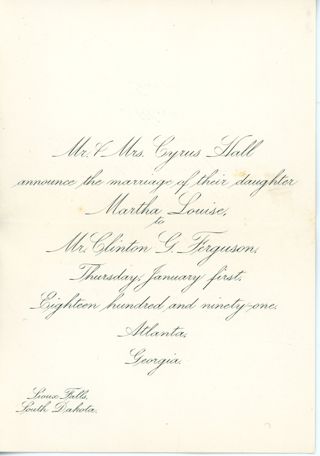 Mr. & Mrs. Cyrus Hall
announce the marriage of their daughter
Martha Louise,
to
Mr. Clinton G. Ferguson,
Thursday, January first,
Eighteen hundred and ninety-one.
Atlanta,
Georgia.
Sioux Falls,
South Dakota.